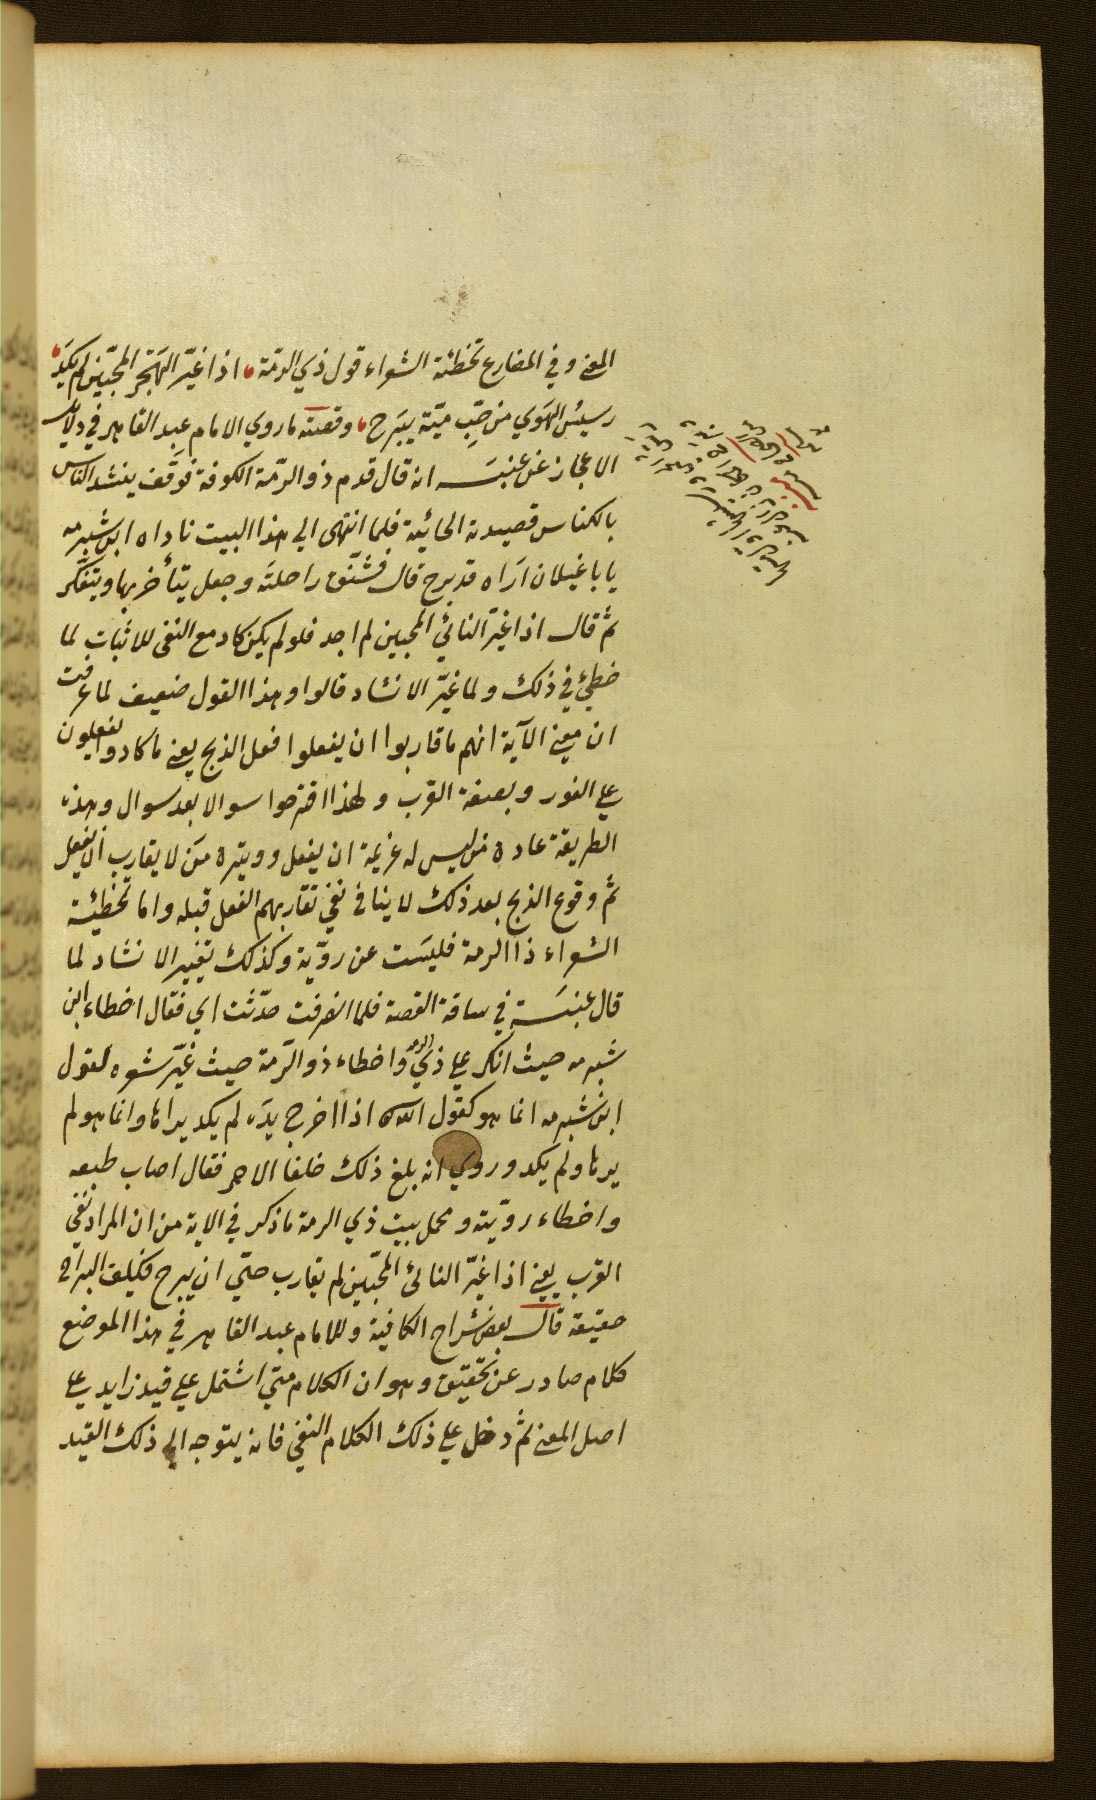 المعنى وفي المضارع تخطئة الشعراء قول ذي الرمّة، اذا غيّر الهَجْر المحبّين لم يَكَد،
رسيسُ الهَوي من حُبّ ميّة يبرَح، وقصته ما روي الامام عبد القاهر في دلايل
الاعجاز عن عنبسَه انه قال قدم ذو الرمّة الكوفة فوَقَف ينشد الناس
بالكناس قصيدته الحائية فلما انتهى الي هذا البيت ناداه ابن شبرمه
يا با غيلان اَرَاه قد برح قال فشنّق راحلتَه وجعل يتأخر بها ويتفكر
ثم قال اذا غيّر النائي المحبين لم اجد فلو لم يكن كاد مع النفى للاثبات لما
خطئ في ذلك ولما غيّر الانشاد قالوا وهذا القول ضعيف لما عرفت
ان معنى الآية انهم ما قاربوا ان يفعلوا فعل الذبح يعنى ما كادوا يفعلون
علي الفور وبصفة القرب ولهذا اقترحوا سوالا بعد سوال وهذه
الطريقة عادة من ليس له عزيمة ان يفعل وويتره من لا يقارب ان يفعل
ثم وقوع الذبح بعد ذلك لا ينافي نفي تقاربهم الفعل قبله واما تخطيئة
الشعراء ذا الرمة فليست عن رويّة وكذلك تغيير الانشاد لما
قال عنبسَة في ساقة القصة فلما انصرفت حدّثت ابي فقال اخطاء ابن
شبرمه حيث انكر علي ذي الرمه واخطاء ذو الرّمة حيث غيّر شعره لقول
ابن شبرمه انما هو كقول الله اذا اخرج يدَه لم يكد يراها وانما هو لم
يرها ولم يكد وروي انه بلغ ذلك خلفا الاحمر فقال اصاب طبعه
واخطاء رويّته ومحمل بيت ذي الرمة ما ذكر في الاية من ان المراد نفي
القرب يعنى اذا غيّر النائى المحبّين لم يقارب حبّي ان يبرح فكيف البراح
حقيقة قال بعض شراح الكافية وللامام عبد القاهر في هذا الموضع
كلام صادر عن تحقيق وهو ان الكلام متي اشتمل علي قيد زايد علي
اصل المعنى ثم دخل علي ذلك الكلام النفى فانه يتوجه الي ذلك القيد